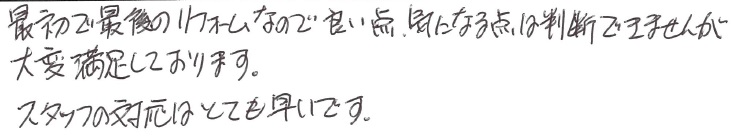 最初で最後のリフォームなので良い点、気になる点は判断できませんが
大変満足しております。
スタッフの対応はとても早いです。